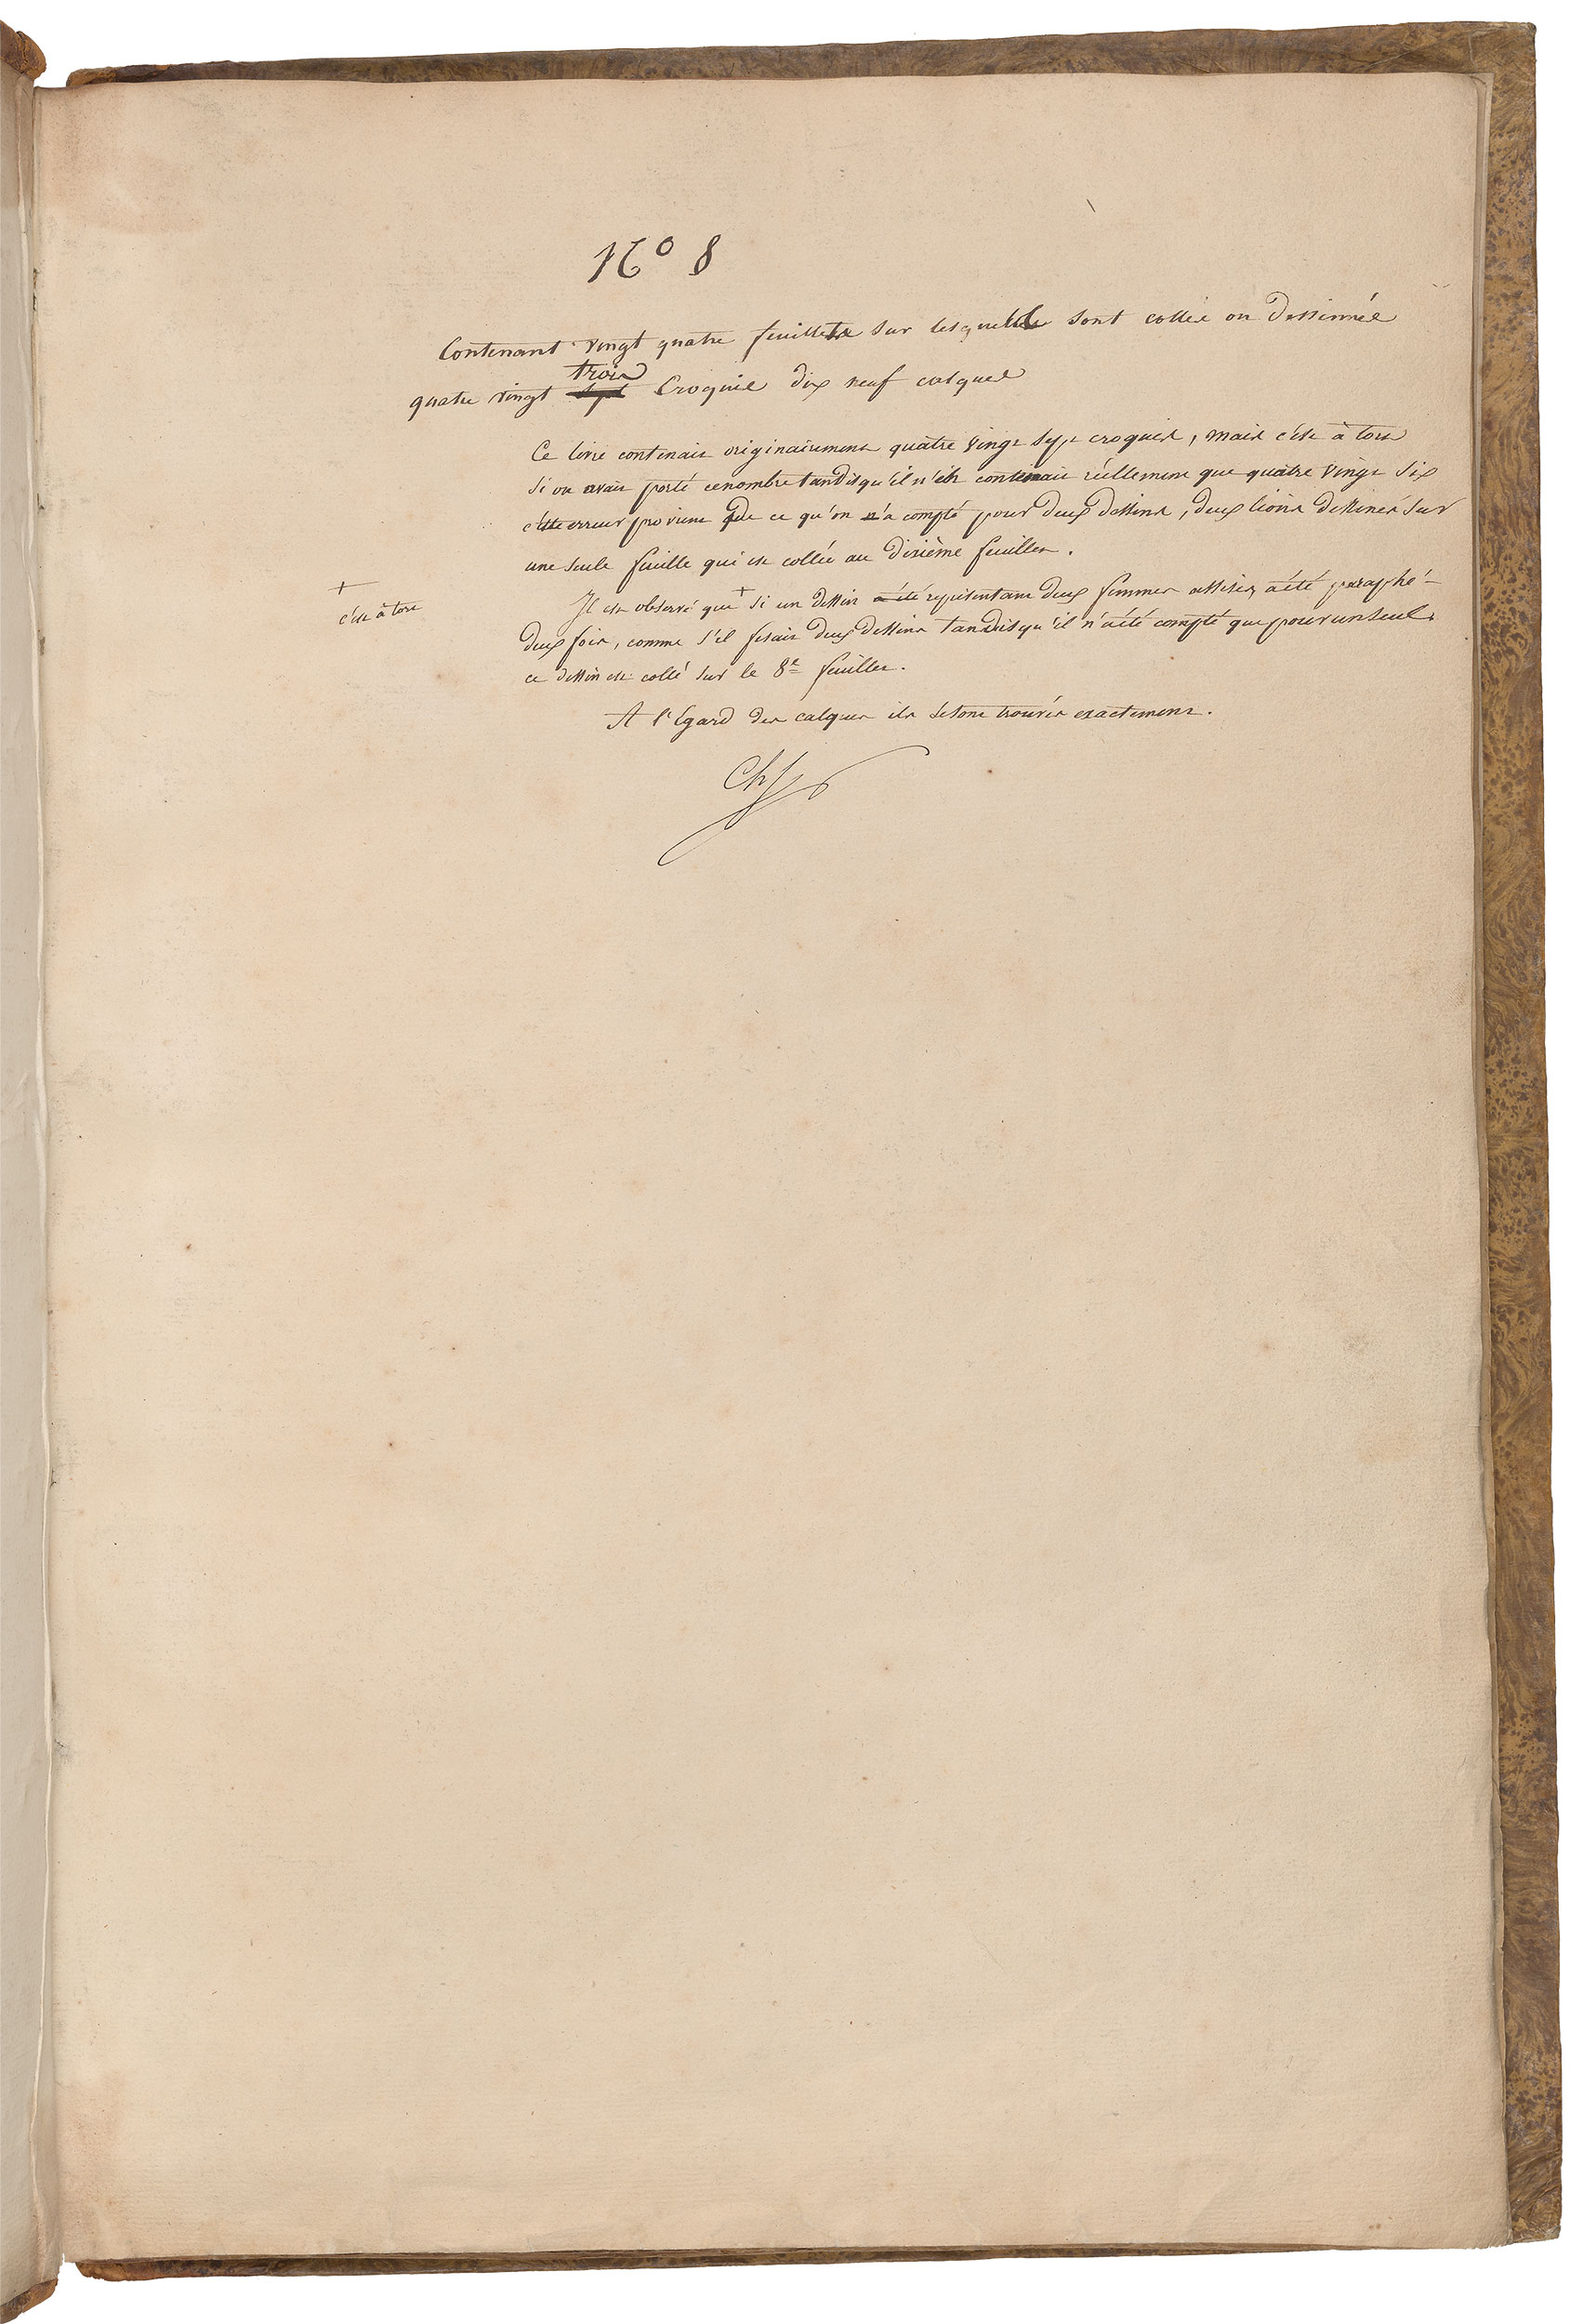 N° 8
Contenant vingt quatre feuillets sur lesquels sont collés ou dessinnés
trois
quatre vingt sept Croquis dix neuf calques
Ce livre contenait originairement quatre vingt sept croquis, mais c'est à tort
si on avait porté ce nombre tandis qu'il n'en contenait réellement que quatre vingt six
cette erreur provient de ce qu'on a compté pour deux dessins, deux lions dessinés sur
une seule feuille qui est collée au dixième feuillet.
+
c'est à tort
Il est observé que + si un dessin a été représentant deux femmes assises, a été paraphé
deux fois, comme s'il fesait deux dessins tandis qu'il n'a été compté que pour un seul.
ce dessin est collé sur le 8e feuillet.
A l'Egard des calques ils se sont trouvés exactement.